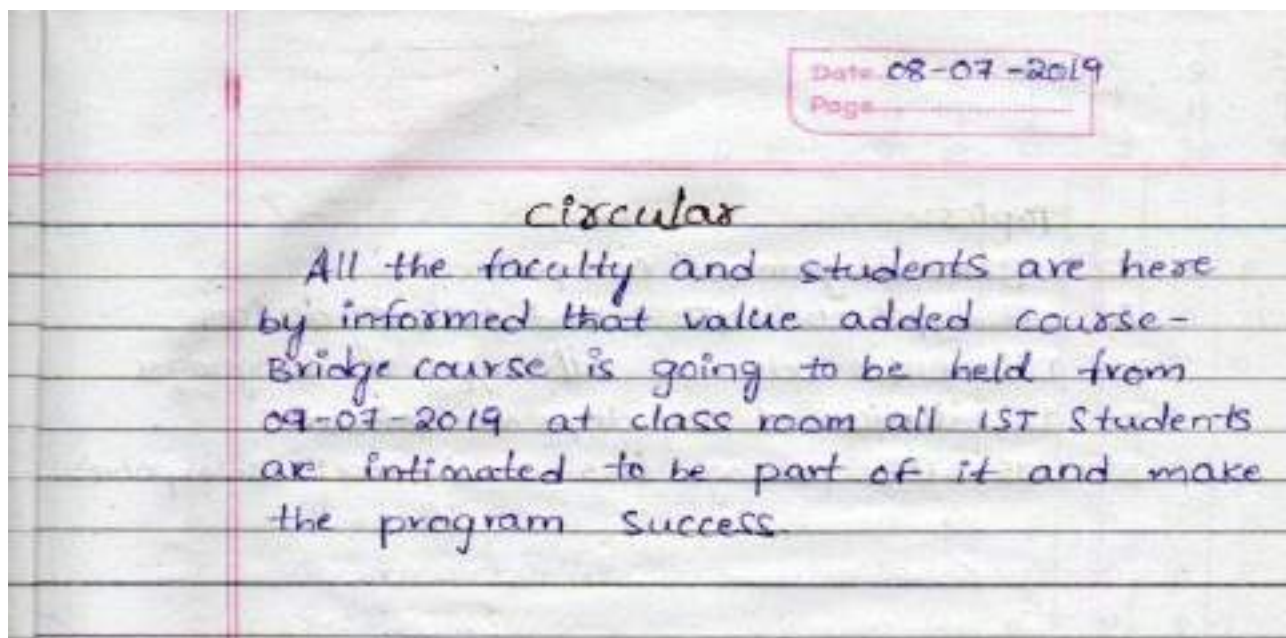 Date 08-07-2019
Page
circular
All the faculty and students are here
by informed that value added course-
Bridge course is going to be held from
09-07-2019 at class room all IST Students
are intimated to be part of it and make
the program success.